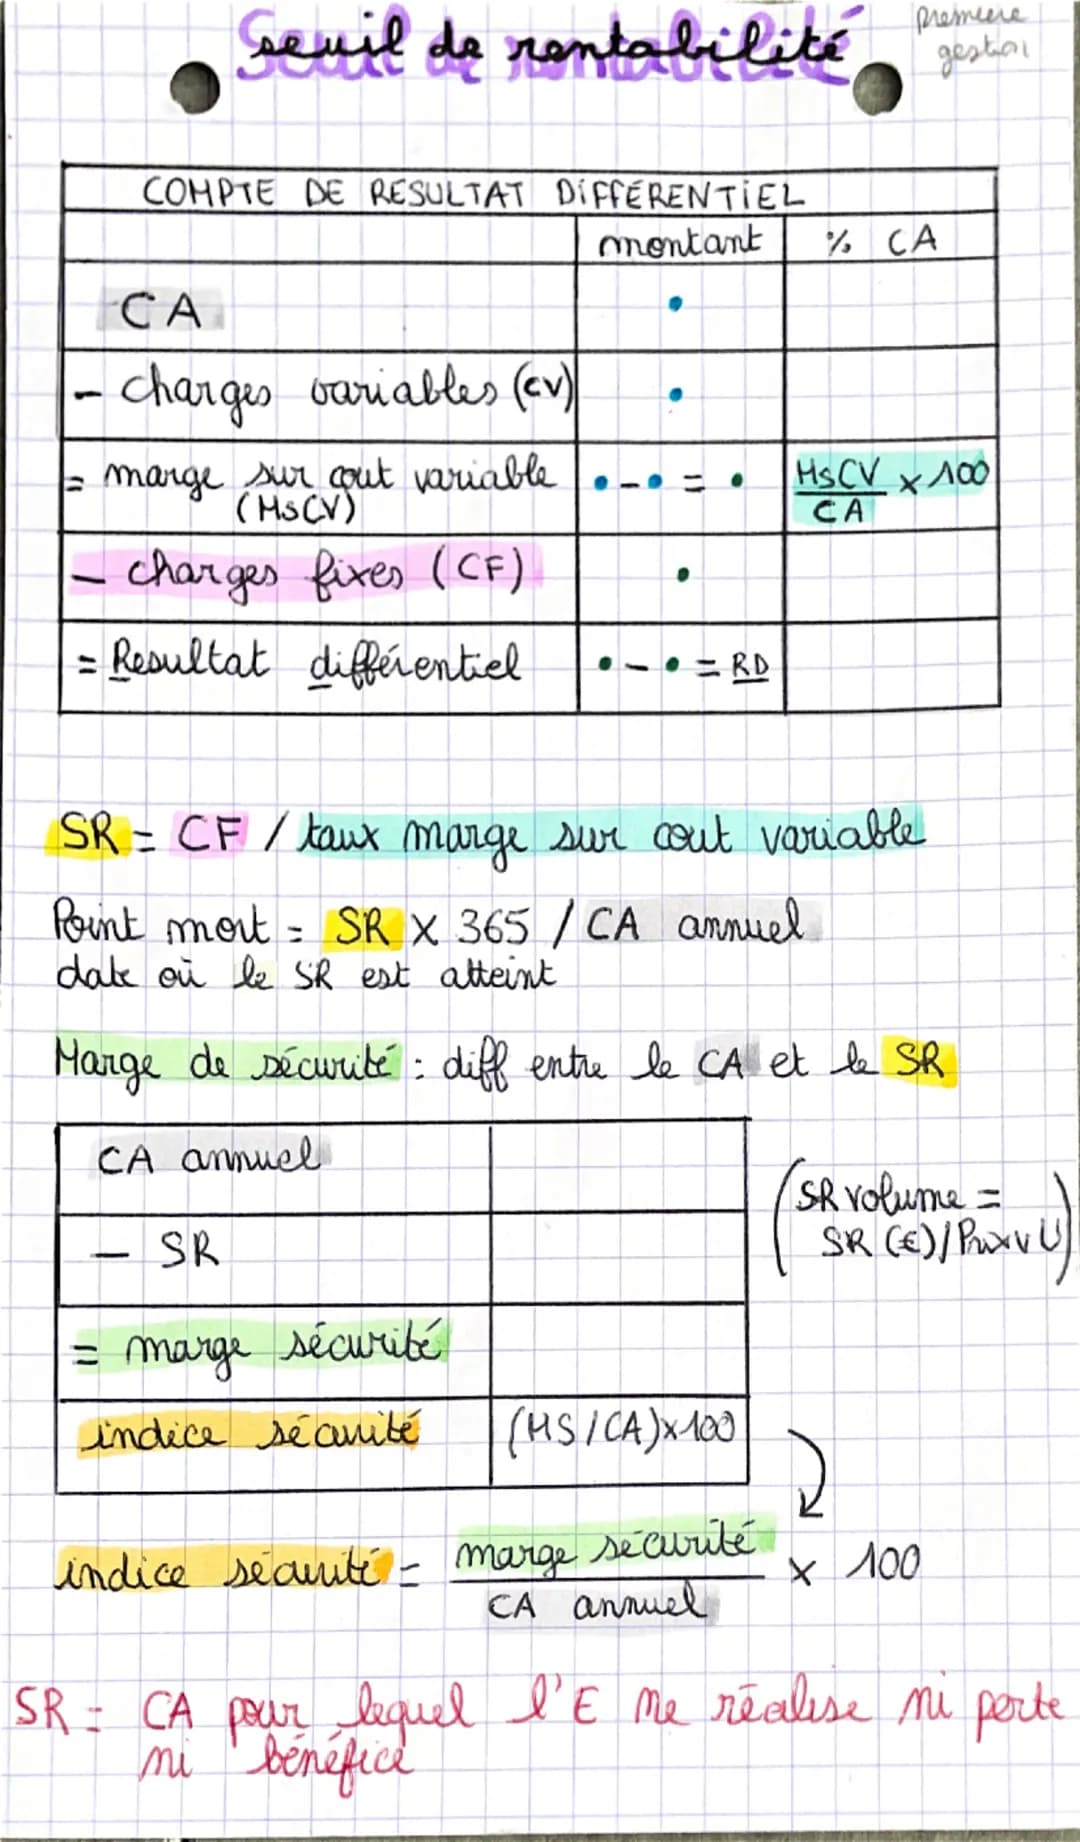 première
gestion
seuil de rentabilité
COMPTE DE RESULTAT DIFFÉRENTIEL
montant % CA
CA •
- charges variables (CV) •
= marge sur cout variable •-• = • MsCV x 100
(MsCV) CA
- charges fixes (CF) •
= Resultat différentiel • - • = RD
SR = CF / taux marge sur cout variable
Point mort = SR X 365 / CA annuel
date où le SR est atteint
Marge de sécurité : diff entre le CA et le SR
CA annuel
- SR
= marge sécurité
indice sécurité (MS/CA)x100
(SR volume =
SR (€)/Prix v U)
indice sécurité = marge sécurité x 100
CA annuel
SR = CA pour lequel l'E ne réalise ni perte
ni bénéfice